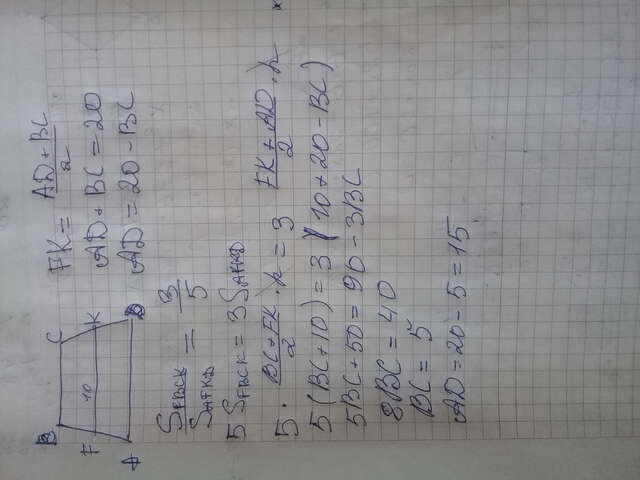 B C
F 10 K
A D
FK = (AD + BC)/2
AD + BC = 20
AD = 20 - BC
S_FBCK / S_AFKD = 3/5
5 S_FBCK = 3 S_AFKD
5 · (BC + FK)/2 · h = 3 (FK + AD)/2 · h
5 (BC + 10) = 3 (10 + 20 - BC)
5BC + 50 = 90 - 3BC
8BC = 40
BC = 5
AD = 20 - 5 = 15